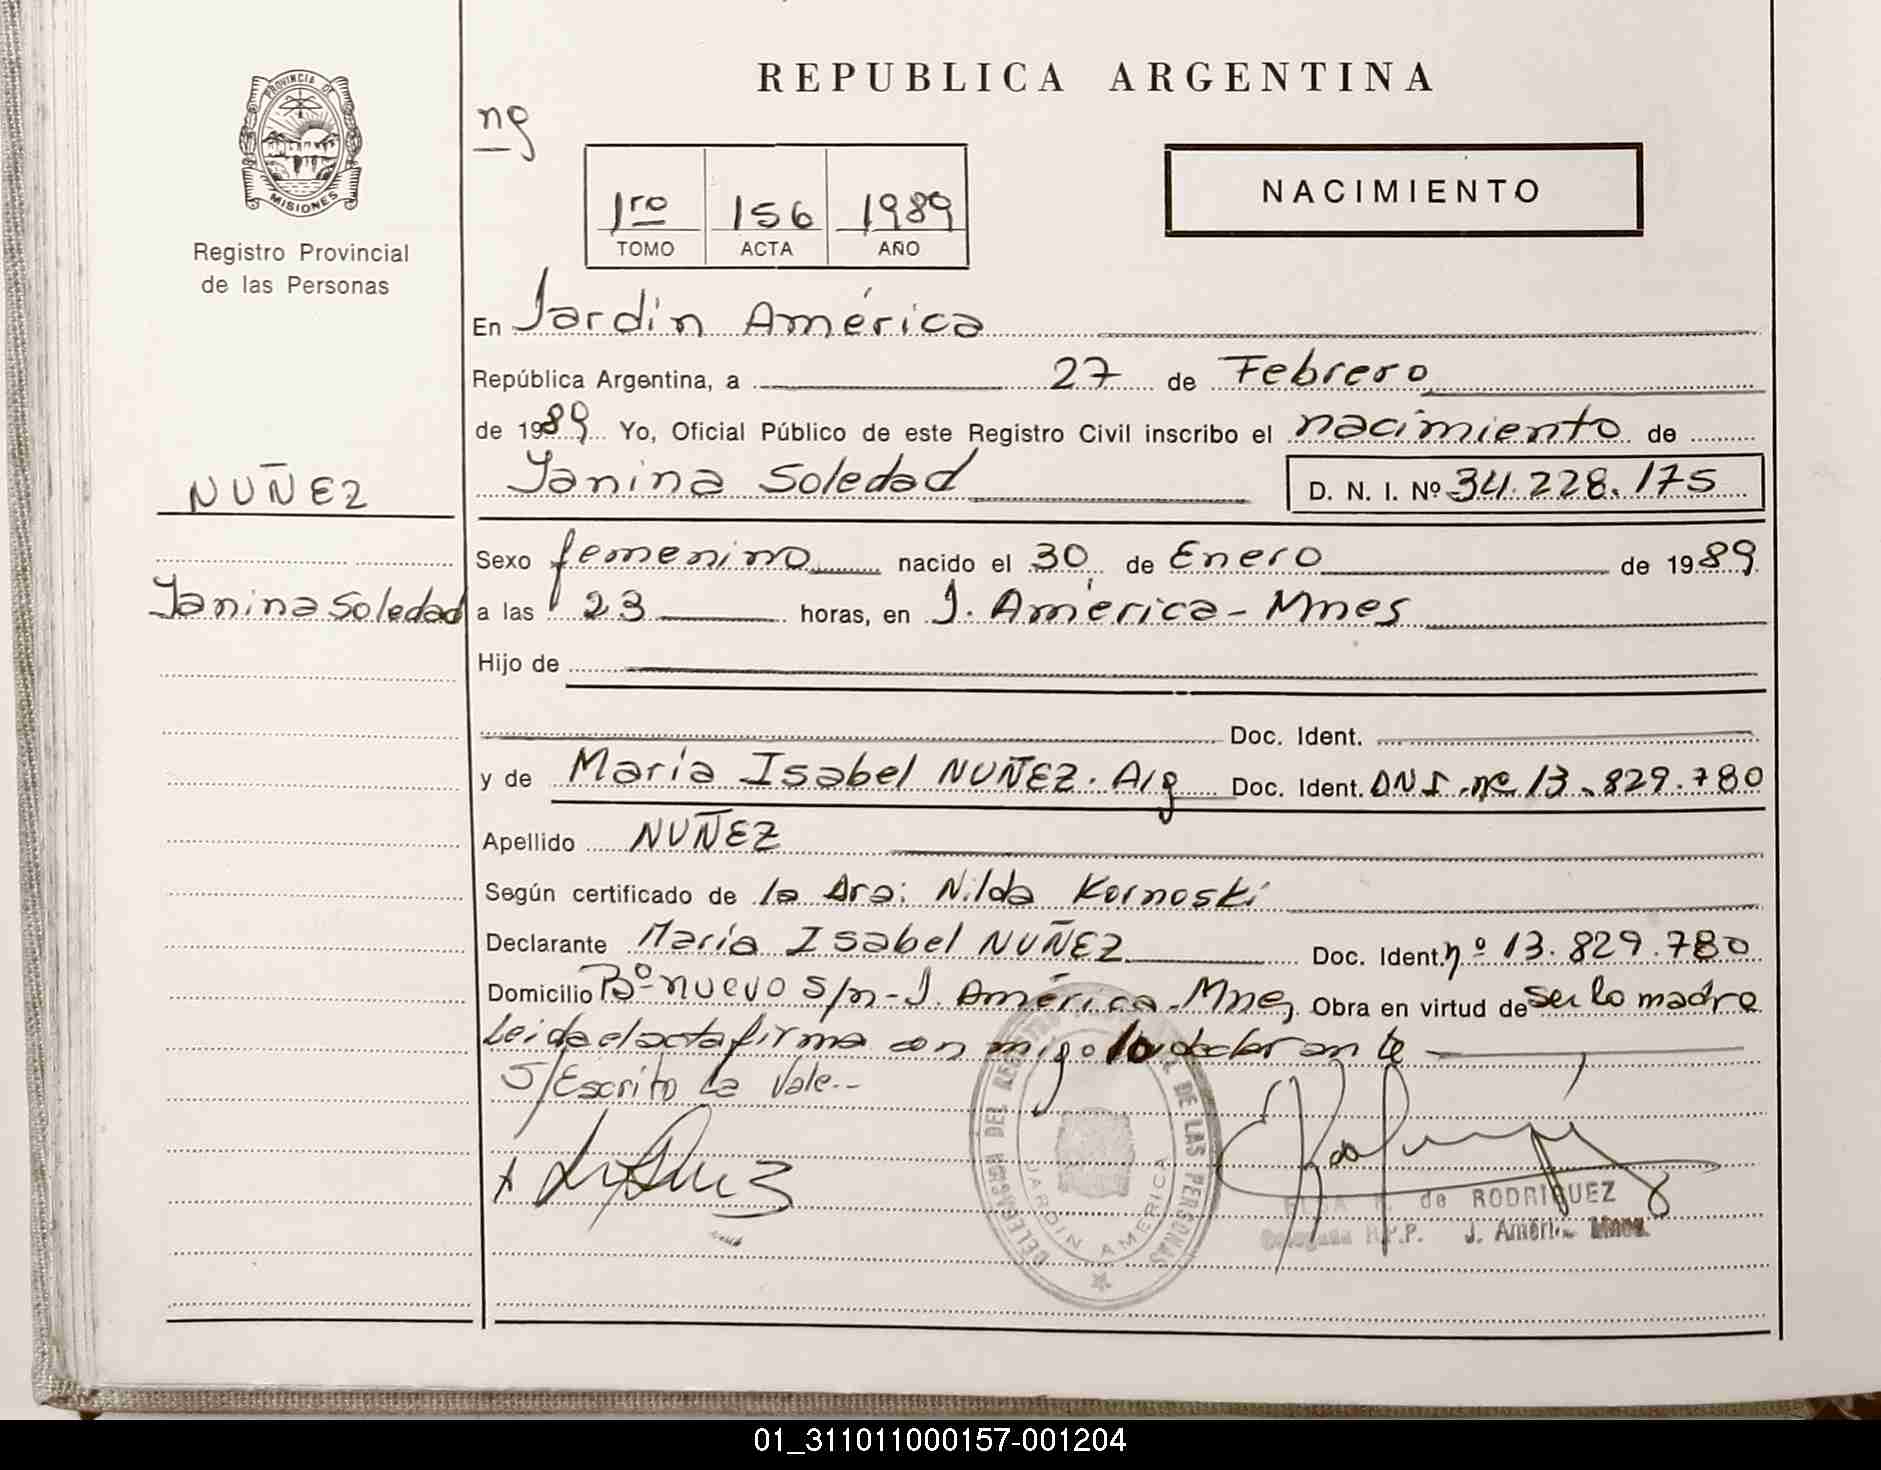 REPUBLICA ARGENTINA
PROVINCIA DE
MISIONES
Registro Provincial
de las Personas
ng
1ro 156 1989
TOMO ACTA AÑO
NACIMIENTO
En Jardín América
República Argentina, a 27 de Febrero
de 1989 Yo, Oficial Público de este Registro Civil inscribo el nacimiento de
NUÑEZ
Yanina Soledad D. N. I. Nº 34.228.175
Sexo femenino nacido el 30 de Enero de 1989
Yanina Soledad
a las 23 horas, en J. América - Mnes
Hijo de
Doc. Ident.
y de María Isabel NUÑEZ. Arg Doc. Ident. DNI. nº 13.829.780
Apellido NUÑEZ
Según certificado de la Dra: Nilda Kornoski
Declarante María Isabel NUÑEZ Doc. Ident. nº 13.829.780
Domicilio Bº nuevo s/n - J. América - Mnes, Obra en virtud de ser la madre
Leida el acta firma con migo la declarante
S/Escrito la Vale..
DELEGACION DEL REGISTRO DE LAS PERSONAS
JARDIN AMERICA
de RODRIGUEZ
Delegada R.P.P. J. América Mnes.
01_311011000157-001204